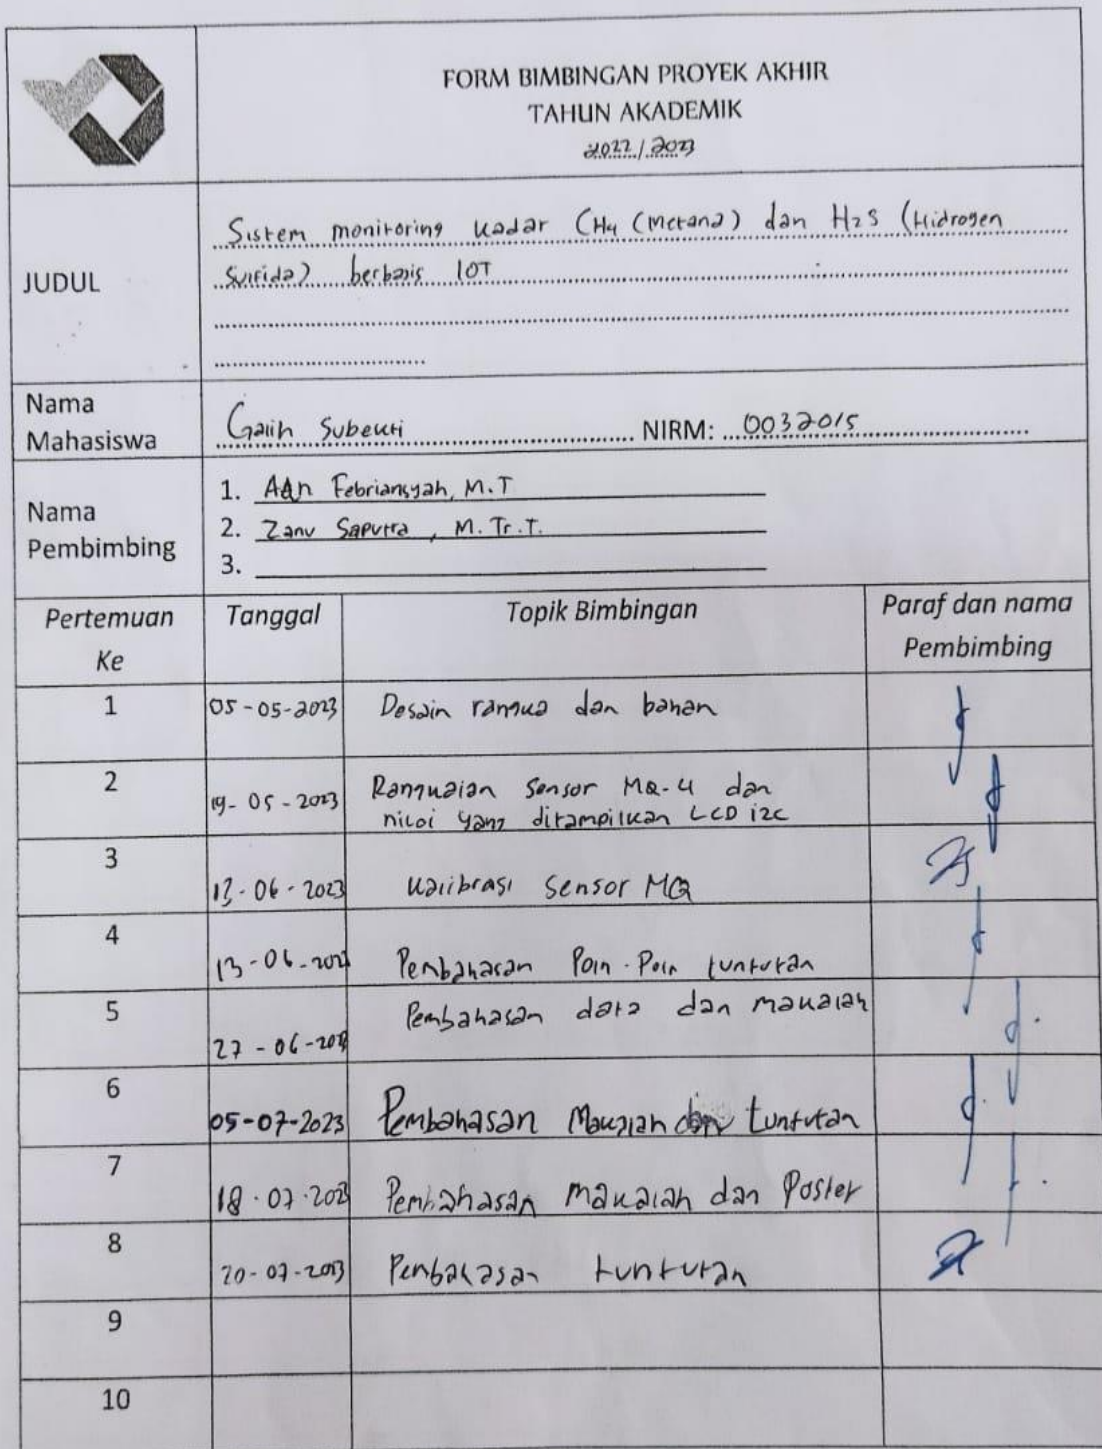 FORM BIMBINGAN PROYEK AKHIR
TAHUN AKADEMIK
2022/2023
JUDUL
Sistem monitoring kadar CH4 (Metana) dan H2S (Hidrogen
Sulfida) berbasis IOT
Nama
Mahasiswa
Galih Subekti NIRM: 0032015
Nama
Pembimbing
1. Aan Febriansyah, M.T
2. Zanu Saputra, M.Tr.T.
3.
Pertemuan
Ke
Tanggal
Topik Bimbingan
Paraf dan nama
Pembimbing
1 05-05-2023 Desain rangka dan bahan
2 19-05-2023 Rangkaian Sensor MQ-4 dan
nilai yang ditampilkan LCD i2c
3 12-06-2023 Kalibrasi Sensor MQ
4 13-06-2023 Pembahasan Poin-Poin tuntutan
5 27-06-2023 Pembahasan data dan makalah
6 05-07-2023 Pembahasan Makalah dan tuntutan
7 18-07-2023 Pembahasan makalah dan Poster
8 20-07-2023 Pembahasan tuntutan
9
10